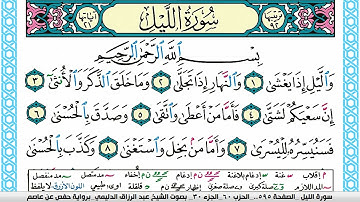 سُورَةُ اللَّيْلِ
بِسْمِ اللَّهِ الرَّحْمَٰنِ الرَّحِيمِ
وَاللَّيْلِ إِذَا يَغْشَىٰ ١ وَالنَّهَارِ إِذَا تَجَلَّىٰ ٢ وَمَا خَلَقَ الذَّكَرَ وَالْأُنثَىٰ ٣
إِنَّ سَعْيَكُمْ لَشَتَّىٰ ٤ فَأَمَّا مَنْ أَعْطَىٰ وَاتَّقَىٰ ٥ وَصَدَّقَ بِالْحُسْنَىٰ ٦
فَسَنُيَسِّرُهُ لِلْيُسْرَىٰ ٧ وَأَمَّا مَن بَخِلَ وَاسْتَغْنَىٰ ٨ وَكَذَّبَ بِالْحُسْنَىٰ
سورة الليل الصفحة ٥٩٥ الحزب ٦٠ الجزء ٣٠ بصوت الشيخ عبد الرزاق الدليمي برواية حفص عن عاصم